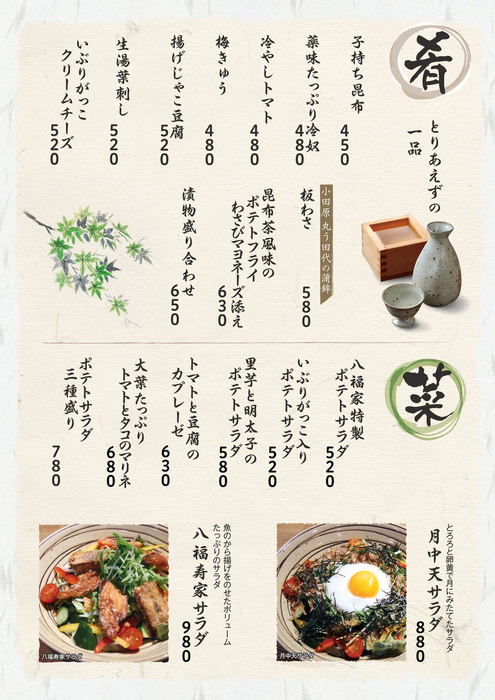 肴
とりあえずの
一品
子持ち昆布
450
薬味たっぷり冷奴
480
冷やしトマト
480
梅きゅう
480
揚げじゃこ豆腐
520
生湯葉刺し
520
いぶりがっこ
クリームチーズ
520
小田原 丸う田代の蒲鉾
板わさ
580
昆布茶風味の
ポテトフライ
わさびマヨネーズ添え
630
漬物盛り合わせ
650
菜
八福家特製
ポテトサラダ
520
いぶりがっこ入り
ポテトサラダ
520
里芋と明太子の
ポテトサラダ
580
トマトと豆腐の
カプレーゼ
630
大葉たっぷり
トマトとタコのマリネ
680
ポテトサラダ
三種盛り
780
とろろと卵黄で月にみたてたサラダ
月中天サラダ
880
月中天サラダ
魚のから揚げをのせたボリューム
たっぷりのサラダ
八福寿家サラダ
980
八福寿家サラダ